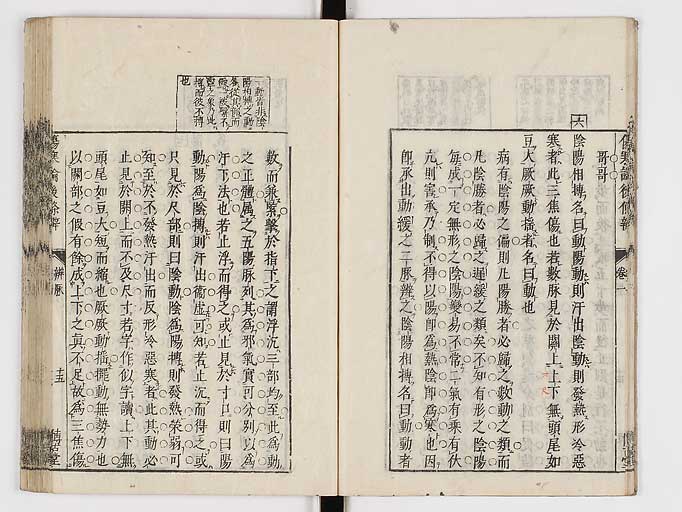 傷寒論後條辨
卷一
哥哥
六
陰陽相搏名曰動陽動則汗出陰動則發熱形冷惡
寒者此三焦傷也若數脉見於關上上下無頭尾如
豆大厥厥動搖者名曰動也
病有陰陽之偏則凡陽勝者必歸之數動之類而
凡陰勝者必歸之遲緩之類矣不知有形之陰陽
每成一定無形之陰陽變易不常二氣有乘有伏
亢則害承乃制不得以陽即爲熱陰即爲寒也因
即承出動緩之二脉辨之陰陽相搏名曰動動者
數而兼緊擊於指下之謂浮沉三部均至此爲動
之正體屬之五陽脉列其爲邪氣實可分列以爲
汗下法也若止浮而得之或止見於寸口則曰陽
動陽爲陰搏則汗出衛虛可知若止沉而得之或
只見於尺部則曰陰動陰爲陽搏則發熱榮弱可
知至於不發熱汗出而反形冷惡寒者此其動必
止見於關上而不及尺寸若字作似字讀上下無
頭尾如豆大短而縮也厥厥動搖擺動無勢力也
以關部之假有餘成上下之真不足故爲三焦傷
傷寒論後條辨
辨脉